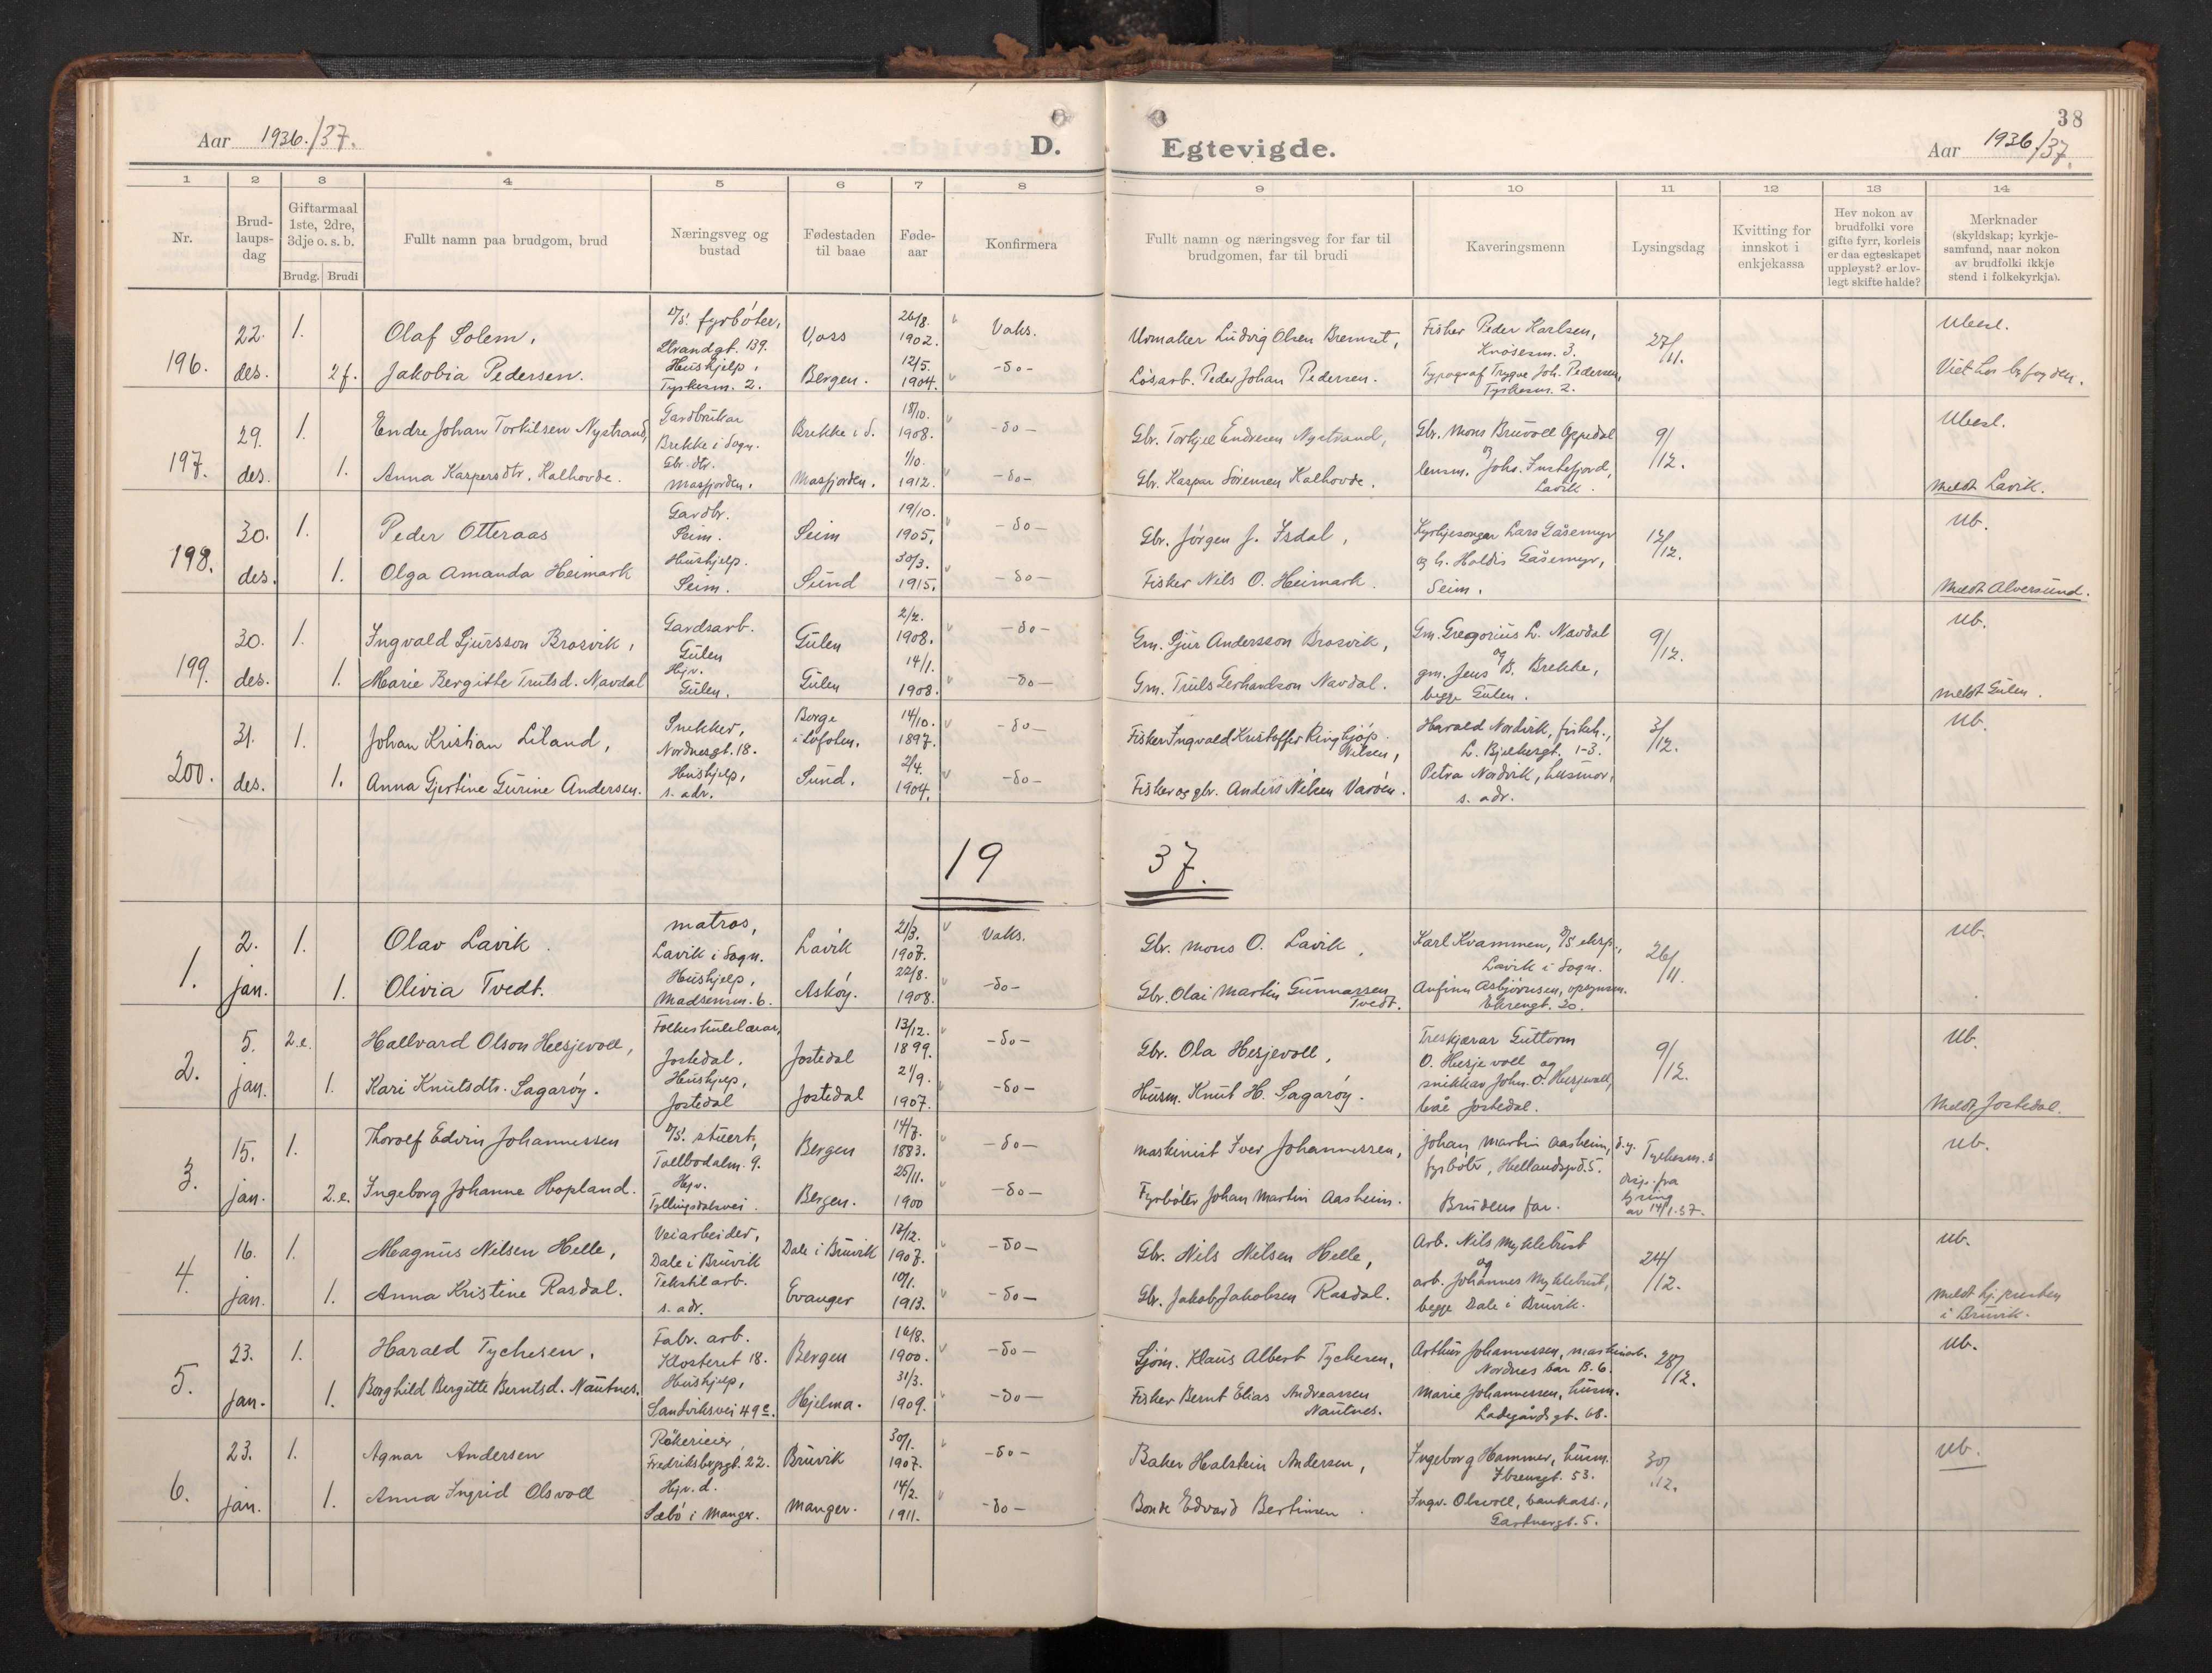 Aar 1936./37. D. Egtevigde. Aar 1936/37. 38
1 2 3 4 5 6 7 8 9 10 11 12 13 14
Nr.
Brud-
laups-
dag
Giftarmaal
1ste, 2dre,
3dje o. s. b.
Brudg. Brudi
Fullt namn paa brudgom, brud
Næringsveg og
bustad
Fødestaden
til baae
Føde-
aar
Konfirmera
Fullt namn og næringsveg for far til
brudgomen, far til brudi
Kaveringsmenn
Lysingsdag
Kvitting for
innskot i
enkjekassa
Hev nokon av
brudfolki vore
gifte fyrr, korleis
er daa egteskapet
uppløyst? er lov-
legt skifte halde?
Merknader
(skyldskap; kyrkje-
samfund, naar nokon
av brudfolki ikkje
stend i folkekyrkja).
196.
22. des.
1. Olaf Solem,
fyrbøter, Strandgt. 139.
Voss 26/8. 1902. Vaks.
Urmaker Ludvig Olsen Bremset,
Fisker Peder Karlsen,
Knøsesm. 3.
27/11.
Ubesl.
2 f. Jakobia Pedersen.
Hushjelp, Tyskesm. 2.
Bergen. 12/5. 1904. -do-
Løsarb. Peder Johan Pedersen.
Typograf Trygve Joh. Pedersen,
Tyskesm. 2.
197.
29. des.
1. Endre Johan Torkilsen Nystrand,
Gardbrukar Brekke i Sogn.
Brekke i S. 18/10. 1908. -do-
Gbr. Torkjel Endresen Nystrand,
Gbr. Mons Bruvoll Oppedal
og
9/12.
Ubesl.
1. Anna Kaspersdtr. Kalhovde.
Gbr. dtr. Masfjorden.
Masfjorden. 1/10. 1912. -do-
Gbr. Kaspar Sørensen Kalhovde.
lensm. Johs. Instefjord,
Lavik.
Meldt Lavik.
198.
30. des.
1. Peder Otteraas
Gardbr. Seim.
Seim 19/10. 1905. -do-
Gbr. Jørgen J. Isdal,
Kyrkjesongar Lars Gåsemyr
12/12.
Ub.
1. Olga Amanda Heimark
Hushjelp. Seim.
Sund 30/3. 1915. -do-
Fisker Nils O. Heimark.
og h. Haldis Gåsemyr,
Seim.
Meldt Alversund.
199.
30. des.
1. Ingvald Sjursson Brosvik,
Gardsarb. Gulen
Gulen 2/2. 1908. -do-
Gm. Sjur Andersson Brosvik,
Gm. Gregorius L. Navdal
og
9/12.
Ub.
1. Marie Bergitte Trulsd. Navdal
Hjv. Gulen.
Gulen 14/1. 1908. -do-
Gm. Truls Gerhardson Navdal.
gm. Jens B. Brekke,
begge Gulen.
meldt Gulen.
200.
31. des.
1. Johan Kristian Liland,
Snekker, Nordnesgt. 18.
Borge i Lofoten. 14/10. 1897. -do-
Fisker Ingvald Kristoffer Ringkjøp
Nilsen,
Harald Nordvik, fiskeh.,
L. Bjelkesgt. 1-3.
3/12.
Ub.
1. Anna Gjertine Gurine Andersen.
Hushjelp, s. adr.
Sund. 2/4. 1904. -do-
Fisker og gbr. Anders Nilsen Varøen.
Petra Nordvik, husmor,
s. adr.
19 37.
1.
2. jan.
1. Olav Lavik.
matros, Lavik i Sogn.
Lavik 21/3. 1907. Vaks.
Gbr. Mons O. Lavik,
Karl Kvammen, eksp.,
Lavik i Sogn.
26/11.
Ub.
1. Olivia Tvedt.
Hushjelp, Madsensm. 6.
Askøy. 22/8. 1908. -do-
Gbr. Olai Martin Gunnarssen
Tvedt.
Anfinn Asbjørnsen, opsynsm.
Ekrengt. 20.
2.
5. jan.
2.e. Hallvard Olson Hesjevoll,
Folkeskulelærar, Jostedal.
Jostedal 13/12. 1899. -do-
Gbr. Ola Hesjevoll,
Treskjærar Guttorm
O. Hesjevoll og
9/12.
Ub.
1. Kari Knutsdtr. Sagarøy.
Hushjelp, Jostedal
Jostedal 21/9. 1907. -do-
Husm. Knut H. Sagarøy.
snikkar Joh. O. Hesjevoll,
båe Jostedal.
Meldt Jostedal.
3.
15. jan.
1. Thorolf Edvin Johannessen
stuert, Tollbodalm. 9.
Bergen 14/7. 1883. -do-
Maskinist Iver Johannessen,
Johan Martin Aasheim,
fyrbøter,
Ub.
2.e. Ingeborg Johanne Hopland.
Hjv. Fyllingsdalsvei.
Bergen. 25/11. 1900 -do-
Fyrbøter Johan Martin Aasheim.
Brudens far.
lysing
av 14/1.37.
4.
16. jan.
1. Magnus Nilsen Helle,
Veiarbeider, Dale i Bruvik
Dale i Bruvik 12/12. 1907. -do-
Gbr. Nils Nilsen Helle,
Arb. Nils Myklebust
og
24/12.
Ub.
1. Anna Kristine Rasdal.
Tekstilarb. s. adr.
Evanger 10/1. 1913. -do-
Gbr. Jakob Jakobsen Rasdal.
arb. Johannes Myklebust,
begge Dale i Bruvik.
meldt hj. presten
i Bruvik.
5.
23. jan.
1. Harald Tychesen,
Fabr. arb. Klosteret 18.
Bergen 16/8. 1900. -do-
Sjøm. Klaus Albert Tychesen,
Arthur Johannessen, maskinarb.
28/12.
Ub.
1. Borghild Bergitte Berntsd. Nautnes.
Hushjelp, Sandviksvei 49 c.
Hjelma. 31/3. 1909. -do-
Fisker Bernt Elias Andreassen
Nautnes.
Marie Johannessen, husm.
Ladegårdsgt. 68.
6.
23. jan.
1. Agnar Andersen
Røkerieier, Fredriksbergsgt. 22.
Bruvik 30/1. 1907. -do-
Baker Halstein Andersen,
Ingeborg Hammer, husm.
Ibsensgt. 53.
30/12.
Ub.
1. Anna Ingrid Olsvoll
Hjv. d. Sæbø i Manger.
Manger. 14/2. 1911. -do-
Bonde Edvard Bertinsen.
Ingv. Olsvoll, bankass.,
Gartnergt. 5.